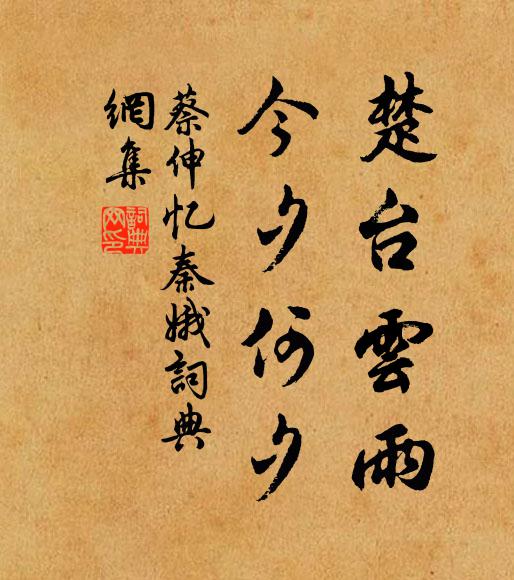 楚台雲雨
今夕何夕
蔡伸忆秦娥詞典
網集
詞典
网印